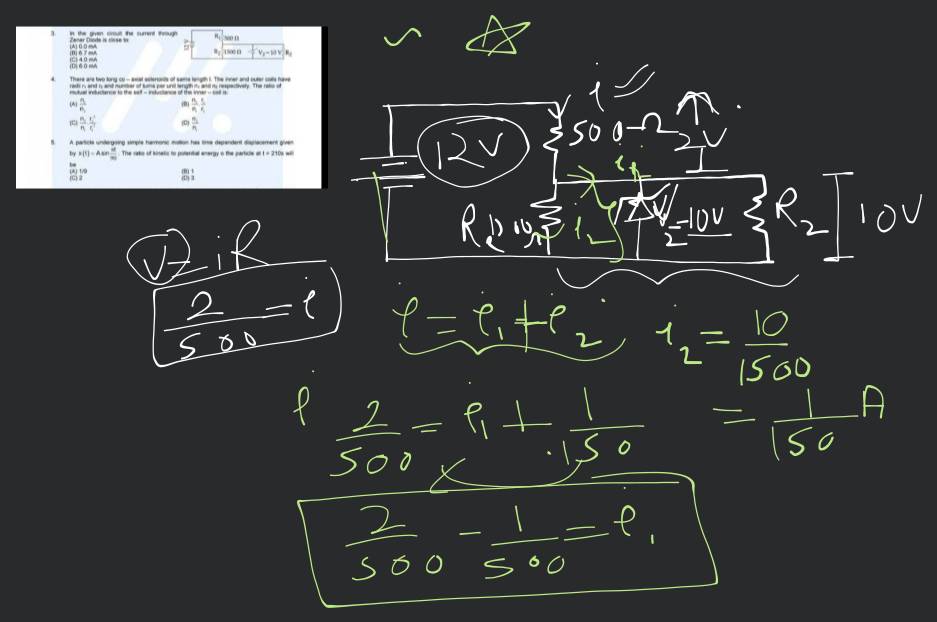 3. In the given circuit the current through
Zener Diode is close to:
(A) 0.0 mA
(B) 6.7 mA
(C) 4.0 mA
(D) 6.0 mA
R₁ 500 Ω
12V
R₂ 1500 Ω V₂=10 V R₂
4. There are two long co – axial solenoids of same length l. The inner and outer coils have
radii r₁ and r₂ and number of turns per unit length n₁ and n₂ respectively. The ratio of
mutual inductance to the self – inductance of the inner – coil is:
(A) n₂/n₁
(B) n₂/n₁ · r₁/r₂
(D) n₁/n₂
5. A particle undergoing simple harmonic motion has time dependent displacement given
by x(t) = A sin πt/90. The ratio of kinetic to potential energy o the particle at t = 210s will
be
(A) 1/9
(B) 1
(C) 2
(D) 3
i
500Ω
2V
12V
i₁
i₂
V₂=10V
R₂
10V
V = iR
2/500 = i
i = i₁ + i₂
i₂ = 10/1500
= 1/150 A
i
2/500 = i₁ + 1/150
2/500 - 1/500 = i₁